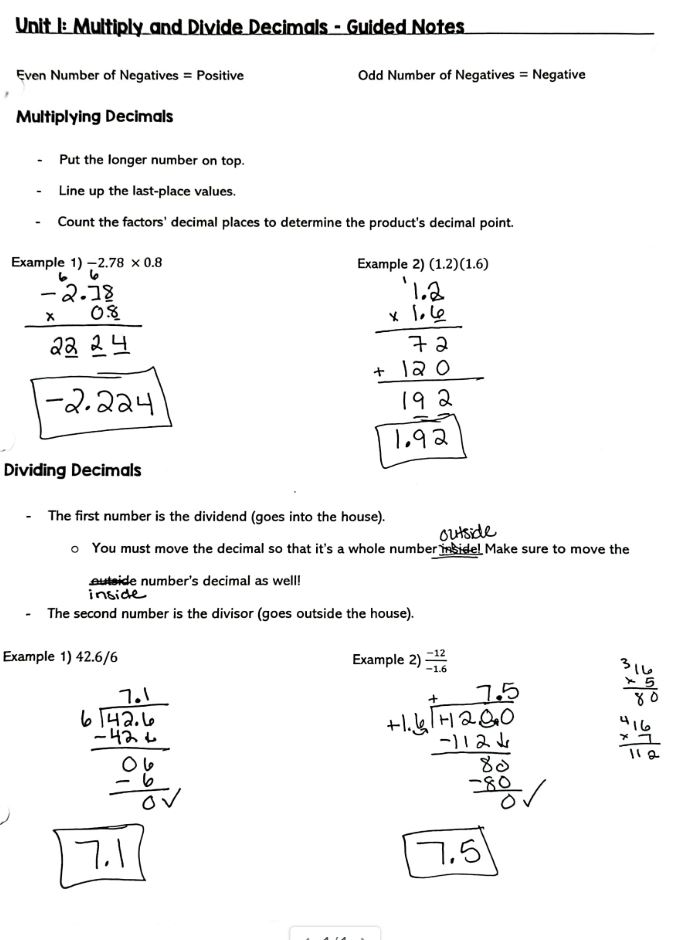 Unit 1: Multiply and Divide Decimals - Guided Notes
Even Number of Negatives = Positive
Odd Number of Negatives = Negative
Multiplying Decimals
- Put the longer number on top.
- Line up the last-place values.
- Count the factors' decimal places to determine the product's decimal point.
Example 1) −2.78 × 0.8
6 6
-2.78
x 0.8
22 24
-2.224
Example 2) (1.2)(1.6)
1 1.2
x 1.6
72
+ 120
192
1.92
Dividing Decimals
- The first number is the dividend (goes into the house).
outside
o You must move the decimal so that it's a whole number inside! Make sure to move the
outside number's decimal as well!
inside
- The second number is the divisor (goes outside the house).
Example 1) 42.6/6
7.1
6 42.6
-42
06
- 6
0✓
7.1
Example 2) −12/−1.6
+ 7.5
+1.6 +120.0
-112
80
-80
0✓
7.5
3 16
x 5
80
4 16
x 7
112